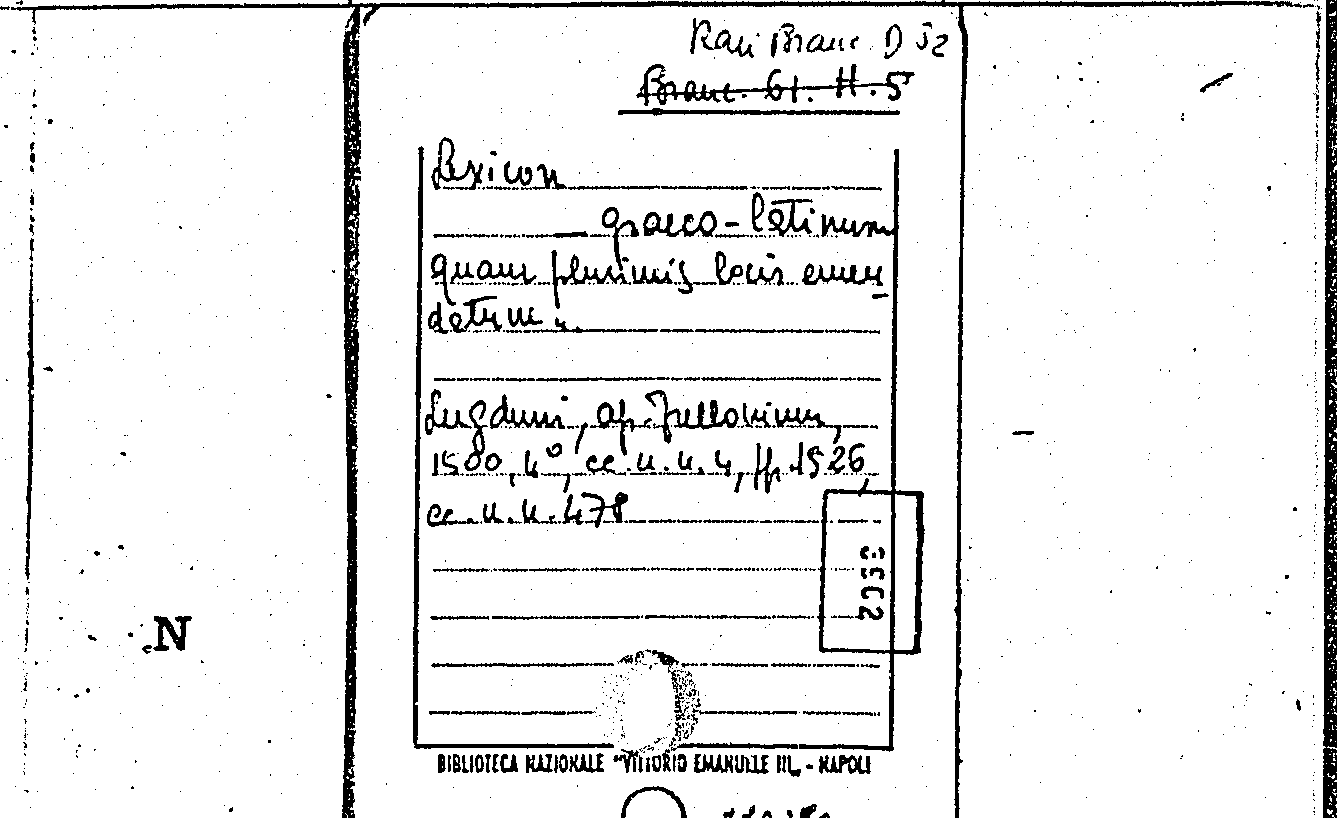 Rari Branc. D 52
Branc. 61. H. 5
Lexicon
— graeco-latinum
quam plurimis locis emen
datum..
Lugduni, ap. Jullonium,
1580, 4°, cc. n. n. 4, pp. 1926,
cc. n. n. 478
N
BIBLIOTECA NAZIONALE "VITTORIO EMANUELE III„ - NAPOLI